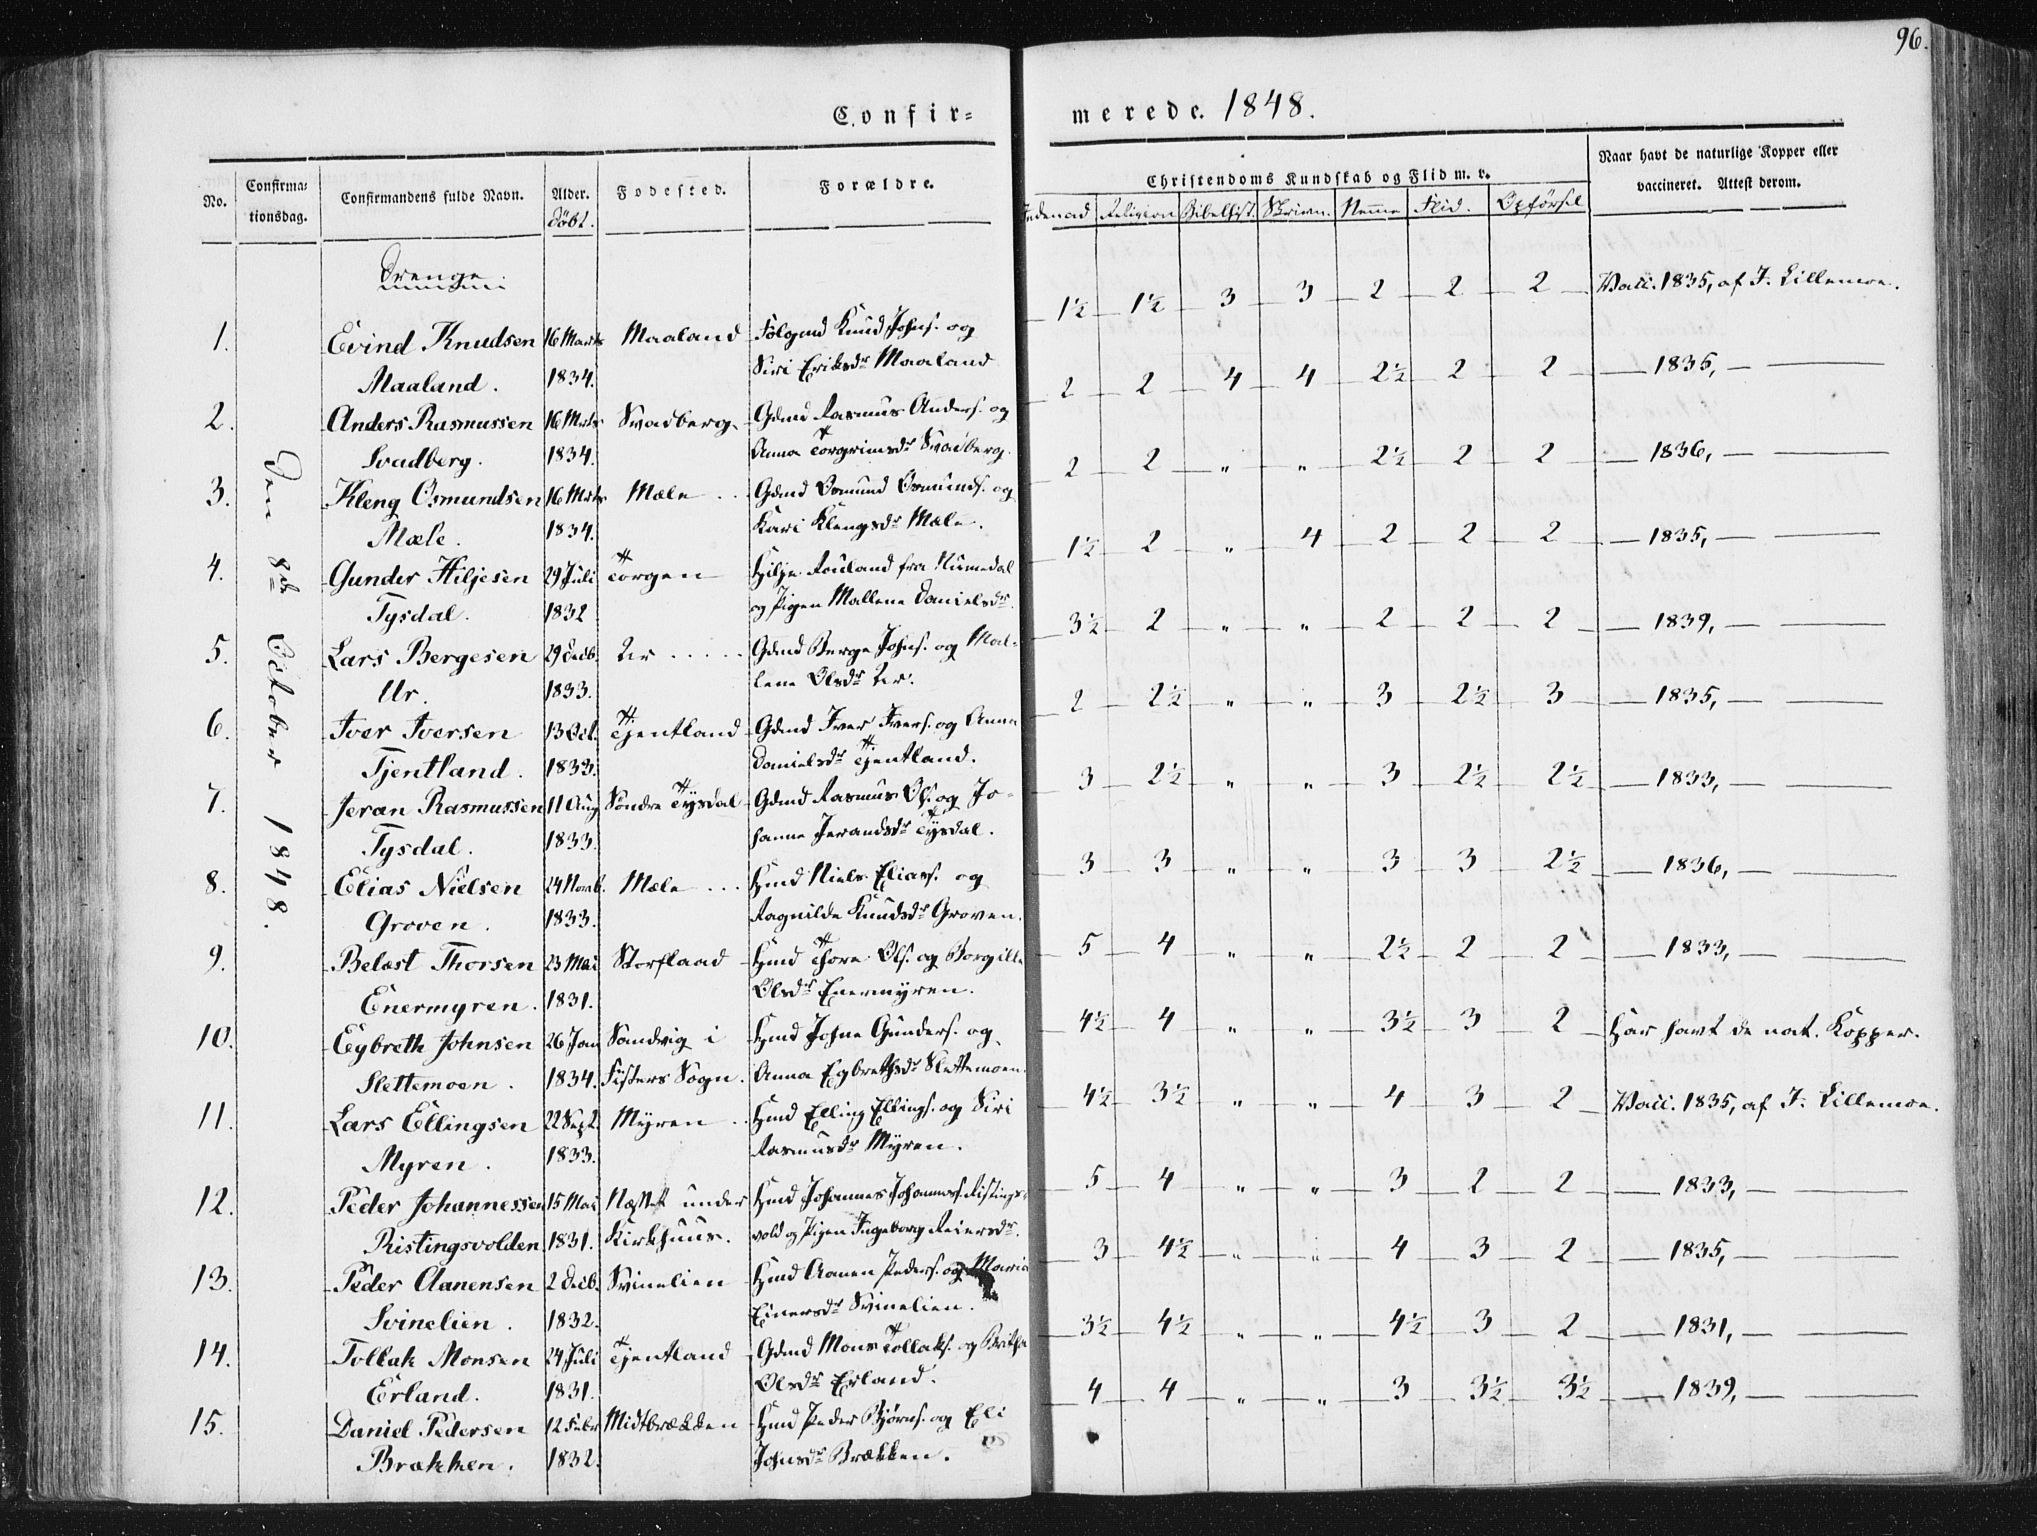 96.
Confir=
merede. 1848.
No.
Confirma=
tionsdag.
Confirmandens fulde Navn.
Alder.
døbt.
Fødested.
Forældre.
Christendoms Kundskab og Flid m. v.
Religion Bibelhist. Skrivn. Nemme Flid. Opførsel
Naar havt de naturlige Kopper eller
vaccineret. Attest derom.
Den 8de October 1848.
Drenge.
1. Eivind Knudsen 16 Marts Maaland Følgmd Knud Johns. og 1½ 1½ 3 3 2 2 2 Vacc. 1835, af J. Lillemoe.
Maaland. 1834. Siri Eriksdr Maaland
2. Anders Rasmussen 16 Mrts Svadberg Gdmd Rasmus Anders. og 2 2 4 4 2½ 2 2 — 1835, —
Svadberg. 1834. Anna Torgrimsdr Svadberg.
3. Kleng Osmundsen 16 Mrts Mæle Gdmd Osmund Osmunds. og 2 2 " " 2½ 2 2 — 1836, —
Mæle. 1834. Kari Klengsdr Mæle.
4. Gunder Hiljesen 29 Juli Torgen Hilje Rouland fra Numedal 1½ 2 " 4 2 2 2 — 1835, —
Tysdal. 1832 og Pigen Mallene Danielsdr.
5. Lars Bergesen 29 Decb. Ur Gdmd Berge Johns. og Mal- 3½ 2 " " 2 2 2 — 1839, —
Ur. 1833. lene Olsdr Ur.
6. Iver Iversen 13 Oct. Tjentland Gdmd Iver Ivers. og Anna 2 2½ " " 3 2½ 3 — 1835, —
Tjentland. 1833. Danielsdr Tjentland.
7. Jeran Rasmussen 11 Aug Søndre Tysdal Gdmd Rasmus Ols. og Jo- 3 2½ " " 3 2½ 2½ — 1833, —
Tysdal. 1833. hanne Jerandsdr Tysdal.
8. Elias Nielsen 24 Novb. Mæle Hmd Niels Elias. og 3 3 " " 3 3 2½ — 1836, —
Groven. 1833. Ragnilde Knudsdr Groven.
9. Belæst Thorsen 23 Mai Storflaad Hmd Thore Ols. og Borgille 5 4 " " 2½ 2 2 — 1833, —
Enermyren. 1831. Olsdr Enermyren.
10. Eybreth Johnsen 26 Jan Sandvig i Hmd Johne Gunders. og 4½ 4 " " 3½ 3 2 Har havt de nat. Kopper.
Slettemoen. 1834. Fisters Sogn. Anna Egbrethsdr Slettemoen.
11. Lars Ellingsen 22 Sept. Myren Hmd Elling Ellings. og Siri 4½ 3½ " " 4 3 2 Vacc. 1835, af J. Lillemoe.
Myren. 1833. Rasmusdr Myren.
12. Peder Johannessen 15 Mai Næsset under Hmd Johannes Johanness. Ristings- 5 4 " " 3 2 2 — 1833, —
Ristingsvolden 1831. Kirkhuus. vold og Pigen Ingeborg Reiersdr.
13. Peder Aanensen 2 Decb. Svinelien Hmd Aanen Peders. og Maria 3 4½ " " 4 3 2 — 1835, —
Svinelien. 1832. Einersdr Svinelien.
14. Tollak Monsen 24 Juli Tjentland Gdmd Mons Tollaks. og Britha 3½ 4½ " " 4½ 3 2 — 1831, —
Erland. 1831. Olsdr Erland.
15. Daniel Pedersen 12 Febr Midtbrækken Hmd Peder Bjørns. og Eli 4 4 " " 3 3½ 3½ — 1839, —
Brækken. 1832. Johnsdr Brækken.